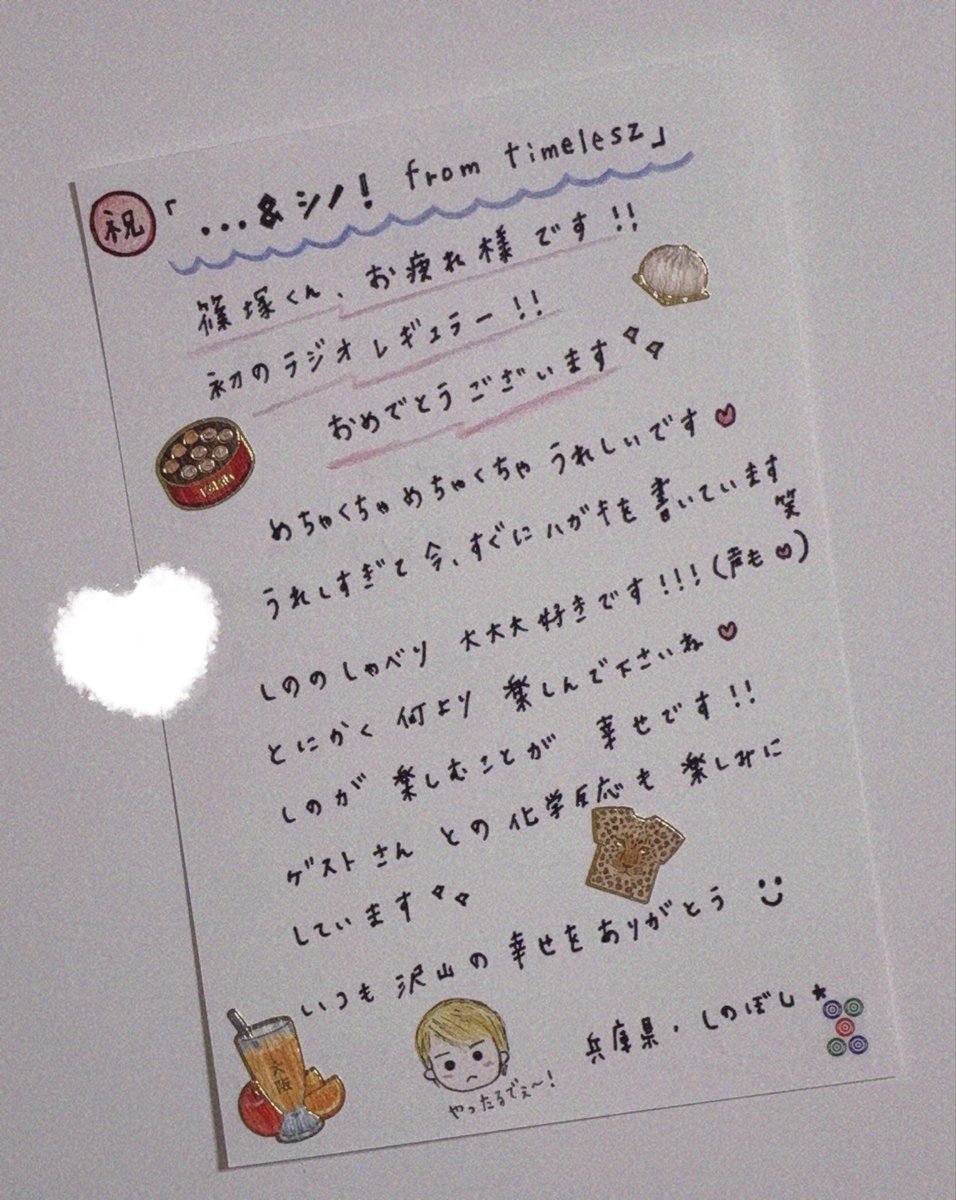 祝「...&シノ! from timelesz」
篠塚くん、お疲れ様です!!
初のラジオレギュラー!!
おめでとうございます
めちゃくちゃめちゃくちゃ うれしいです
うれしすぎて今、すぐにハガキを書いています
笑
しののしゃべり 大大大好きです!!!(声も♥)
とにかく何より 楽しんで下さいね♥
しのが 楽しむことが 幸せです!!
ゲストさん との化学反応も 楽しみに
しています
いつも沢山の幸せをありがとう
兵庫県・しのぼし★
大阪
やったるでぇ〜!